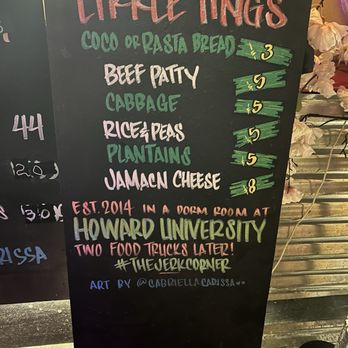 LITTLE TINGS
COCO OR RASTA BREAD 3
BEEF PATTY 5
CABBAGE 5
RICE & PEAS 5
PLANTAINS 5
JAMACN CHEESE 8
EST. 2014 IN A DORM ROOM AT
HOWARD UNIVERSITY
TWO FOOD TRUCKS LATER!
#THEJERKCORNER
ART BY @GABRIELLACARISSA
44